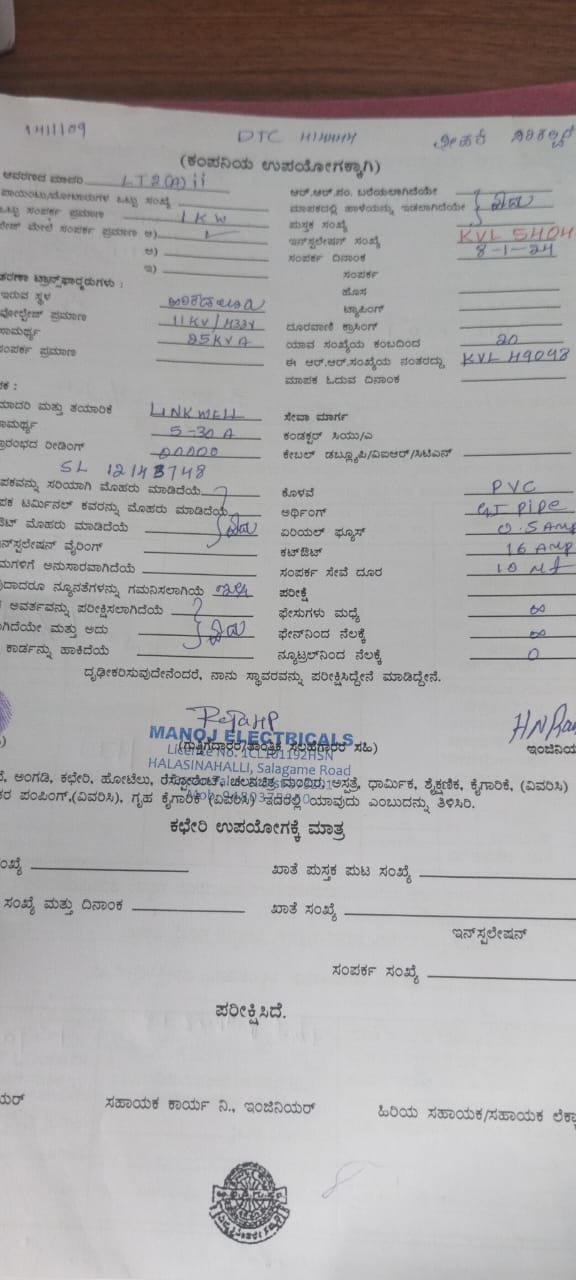 1411109 DTC
(ಕಂಪನಿಯ ಉಪಯೋಗಕ್ಕಾಗಿ)
ಮಾದರಿ LT2(A)ii ಆರ್.ಆರ್.ನಂ. ಬರೆಯಲಾಗಿದೆಯೇ
ಒಟ್ಟು ಸಂಖ್ಯೆ ಮಾಪಕದಲ್ಲಿ ಹಾಳೆಯನ್ನು ಇಡಲಾಗಿದೆಯೇ
ಒಟ್ಟು ಸಂಪರ್ಕ ಪ್ರಮಾಣ 1 KW ಪುಸ್ತಕ ಸಂಖ್ಯೆ
ಮೇಲೆ ಸಂಪರ್ಕ ಪ್ರಮಾಣ ಅ) ಇನ್‌ಸ್ಟಲೇಷನ್ ಸಂಖ್ಯೆ KVL 5404
ಆ) ಸಂಪರ್ಕ ದಿನಾಂಕ 8-1-24
ಇ) ಸಂಪರ್ಕ
ಟ್ರಾನ್ಸ್‌ಫಾರ್ಮರುಗಳು : ಹೊಸ
ಇರುವ ಸ್ಥಳ ಟ್ಯಾಪಿಂಗ್
ವೋಲ್ಟೇಜ್ ಪ್ರಮಾಣ 11KV/433V ದೂರವಾಣಿ ಕ್ರಾಸಿಂಗ್
ಸಾಮರ್ಥ್ಯ 25KVA ಯಾವ ಸಂಖ್ಯೆಯ ಕಂಬದಿಂದ 20
ಸಂಪರ್ಕ ಪ್ರಮಾಣ ಈ ಆರ್.ಆರ್.ಸಂಖ್ಯೆಯ ನಂತರದ್ದು KVL 49048
ಮಾಪಕ ಓದುವ ದಿನಾಂಕ
ಮಾದರಿ ಮತ್ತು ತಯಾರಿಕೆ LINKWELL ಸೇವಾ ಮಾರ್ಗ
ಸಾಮರ್ಥ್ಯ 5-30 A ಕಂಡಕ್ಟರ್ ಸಿಯು/ಎ
ರೀಡಿಂಗ್ 00000 ಕೇಬಲ್ ಡಬ್ಲ್ಯೂಪಿ/ವಿಐಆರ್/ಸಿಟಿಎಸ್
SL 12143748
ಸರಿಯಾಗಿ ಮೊಹರು ಮಾಡಿದೆಯೆ ಕೊಳವೆ PVC
ಟರ್ಮಿನಲ್ ಕವರನ್ನು ಮೊಹರು ಮಾಡಿದೆಯೆ ಅರ್ಥಿಂಗ್ GI pipe
ಮೊಹರು ಮಾಡಿದೆಯೆ ಏರಿಯಲ್ ಫ್ಯೂಸ್ 0.5 Amp
ವೈರಿಂಗ್ ಕಟ್‌ಔಟ್ 16 Amp
ಅನುಸಾರವಾಗಿದೆಯೆ ಸಂಪರ್ಕ ಸೇವೆ ದೂರ 10 Mt
ನ್ಯೂನತೆಗಳನ್ನು ಗಮನಿಸಲಾಗಿಯೆ ಪರೀಕ್ಷೆ
ಅವರ್ತವನ್ನು ಪರೀಕ್ಷಿಸಲಾಗಿದೆಯೆ ಫೇಸುಗಳು ಮಧ್ಯೆ ∞
ಮತ್ತು ಅದು ಫೇಸ್‌ನಿಂದ ನೆಲಕ್ಕೆ ∞
ಕಾರ್ಡನ್ನು ಹಾಕಿದೆಯೆ ನ್ಯೂಟ್ರಲ್‌ನಿಂದ ನೆಲಕ್ಕೆ 0
ದೃಢೀಕರಿಸುವುದೇನೆಂದರೆ, ನಾನು ಸ್ಥಾವರವನ್ನು ಪರೀಕ್ಷಿಸಿದ್ದೇನೆ ಮಾಡಿದ್ದೇನೆ.
MANOJ ELECTRICALS
HALASINAHALLI, Salagame Road
ಅಂಗಡಿ, ಕಛೇರಿ, ಹೋಟೆಲು, ರೆಸ್ಟೋರೆಂಟ್, ಚಲನಚಿತ್ರ ಮಂದಿರ, ಆಸ್ಪತ್ರೆ, ಧಾರ್ಮಿಕ, ಶೈಕ್ಷಣಿಕ, ಕೈಗಾರಿಕೆ, (ವಿವರಿಸಿ)
ಪಂಪಿಂಗ್,(ವಿವರಿಸಿ), ಗೃಹ ಕೈಗಾರಿಕೆ (ವಿವರಿಸಿ) ಇದರಲ್ಲಿ ಯಾವುದು ಎಂಬುದನ್ನು ತಿಳಿಸಿರಿ.
ಕಛೇರಿ ಉಪಯೋಗಕ್ಕೆ ಮಾತ್ರ
ಖಾತೆ ಪುಸ್ತಕ ಪುಟ ಸಂಖ್ಯೆ
ಸಂಖ್ಯೆ ಮತ್ತು ದಿನಾಂಕ ಖಾತೆ ಸಂಖ್ಯೆ
ಇನ್‌ಸ್ಟಲೇಷನ್
ಸಂಪರ್ಕ ಸಂಖ್ಯೆ
ಪರೀಕ್ಷಿಸಿದೆ.
ಸಹಾಯಕ ಕಾರ್ಯ ನಿ., ಇಂಜಿನಿಯರ್ ಹಿರಿಯ ಸಹಾಯಕ/ಸಹಾಯಕ